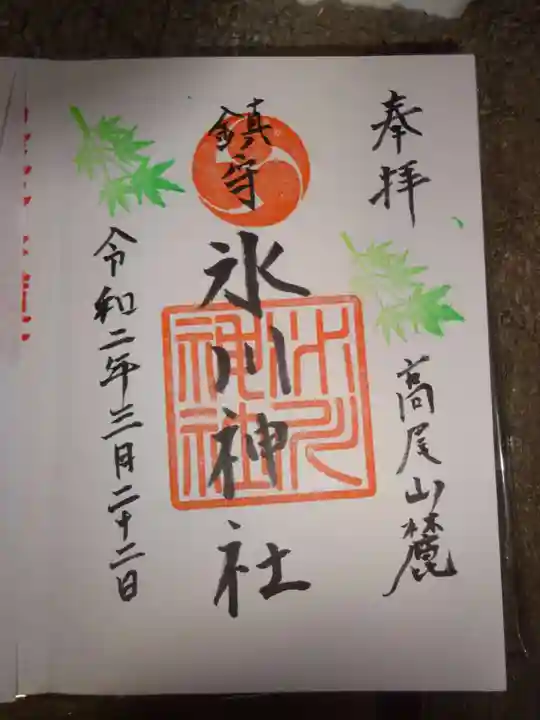 奉拝
高尾山麓
鎮守
氷川神社
氷川
神社
令和二年三月二十二日